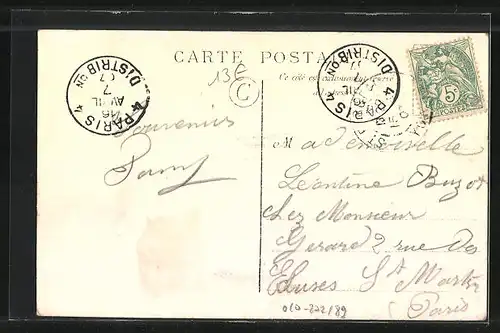 CARTE POSTALE
Ce côté est exclusivement réservé
à l'adresse
13€
C
PARIS 4
DISTRIBON
16
AVRIL
07
PARIS 4
DISTRIBON
5c
POSTES
Souvenirs
M ademoiselle
Léontine Buzot
chez Monsieur
Gerard 2 rue des
Écluses St Martin
Paris
010-222/89